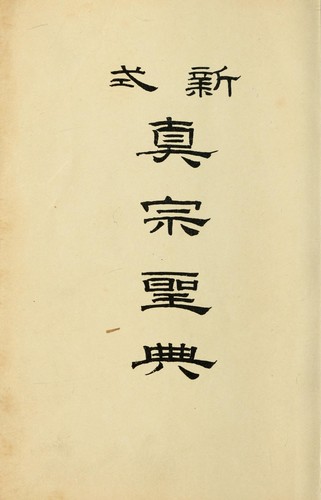 新式
真宗聖典